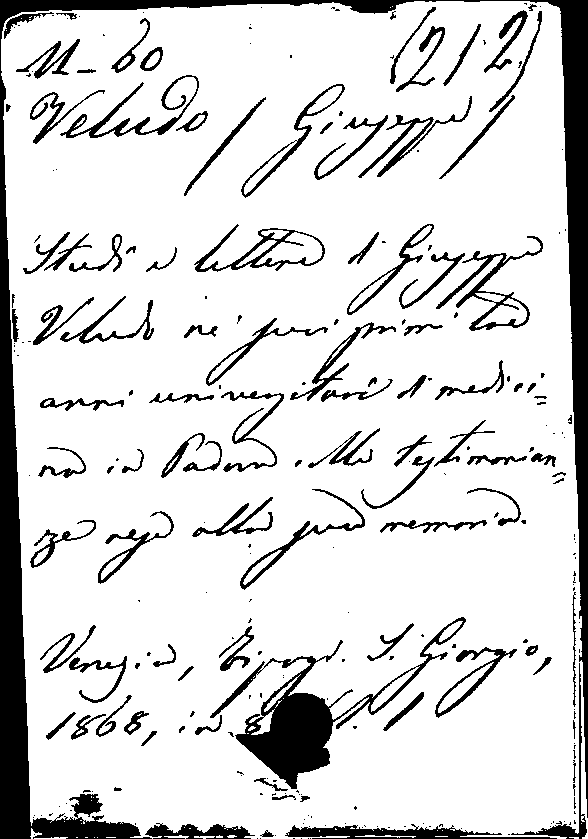 M-60 (212)
Veludo / Giuseppe /
Studi e lettere di Giuseppe
Veludo ne' suoi primi due
anni universitari di medici=
na in Padova. Alle testimonian=
ze rese alla sua memoria.
Venezia, Tipogr. S. Giorgio,
1868, in 8